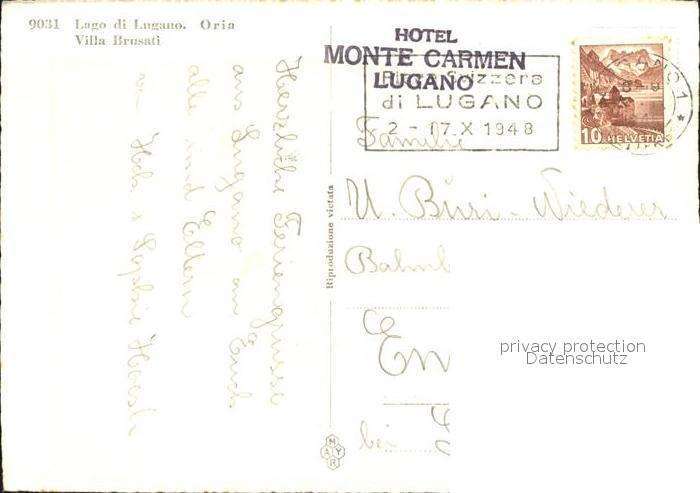 9031 Lago di Lugano. Oria
Villa Brusati
HOTEL
MONTE CARMEN
LUGANO
Fiera Svizzera
di LUGANO
2 - 17.X 1948
10 HELVETIA
Herzliche Feriengrüsse
aus Lugano an Euch
alle und Eltern
Riproduzione vietata
Familie
U. Büsi-Wiederer
privacy protection
Datenschutz
bei
MAYR